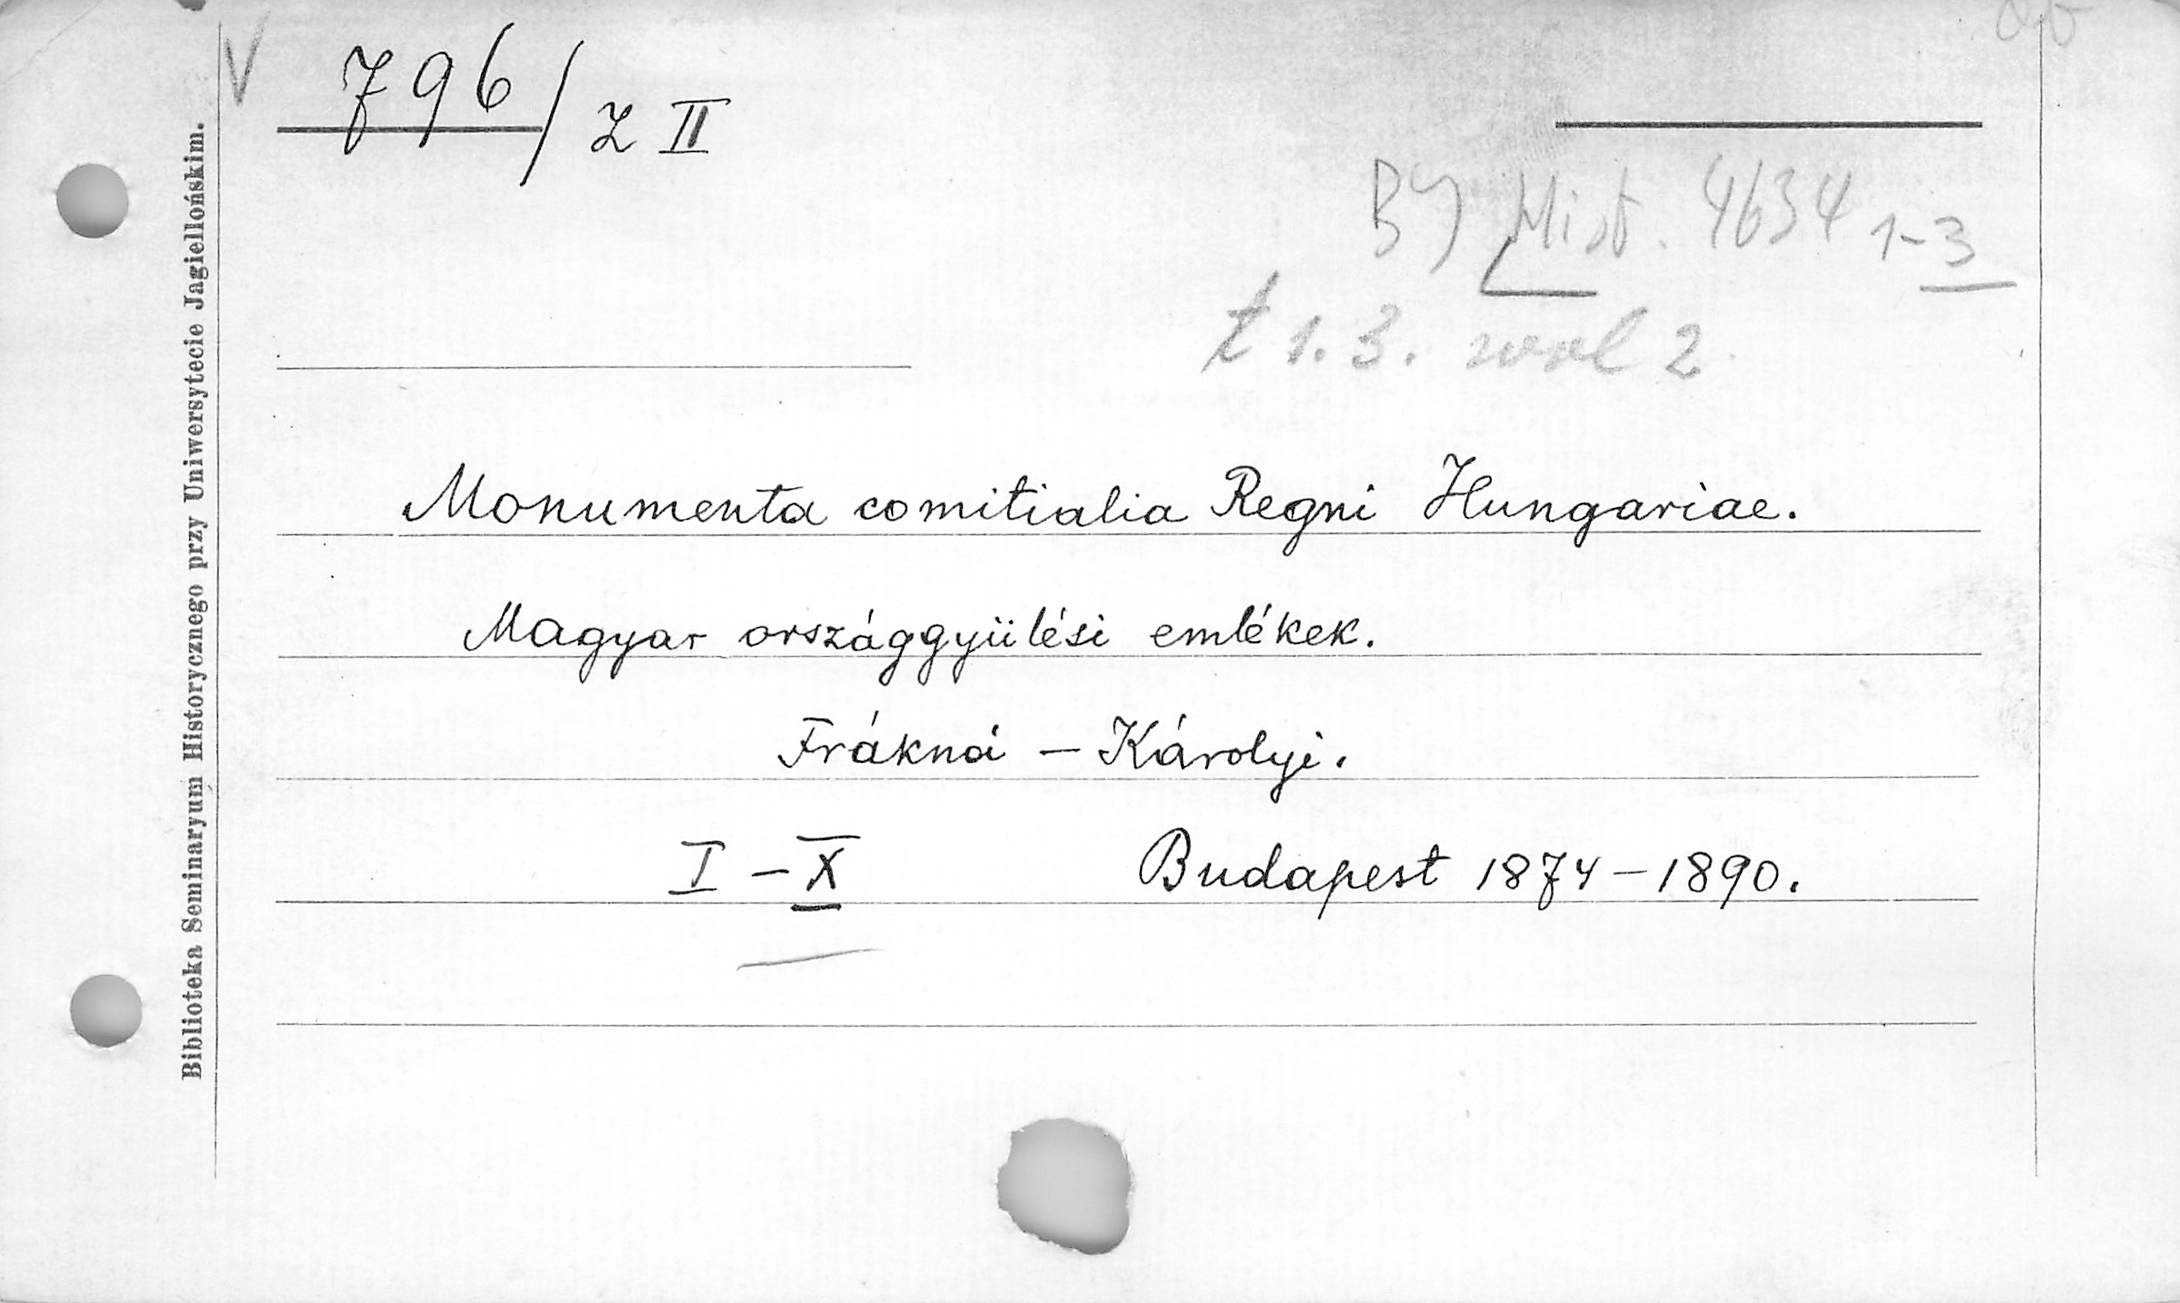 V 796/z II
BJ Hist. 4634 1-3
t 1. 3. wol 2
Monumenta comitialia Regni Hungariae.
Magyar országgyülési emlékek.
Frákná – Károlyi.
I – X Budapest 1874–1890.
Biblioteka Seminaryum Historycznego przy Uniwersytecie Jagiellońskim.